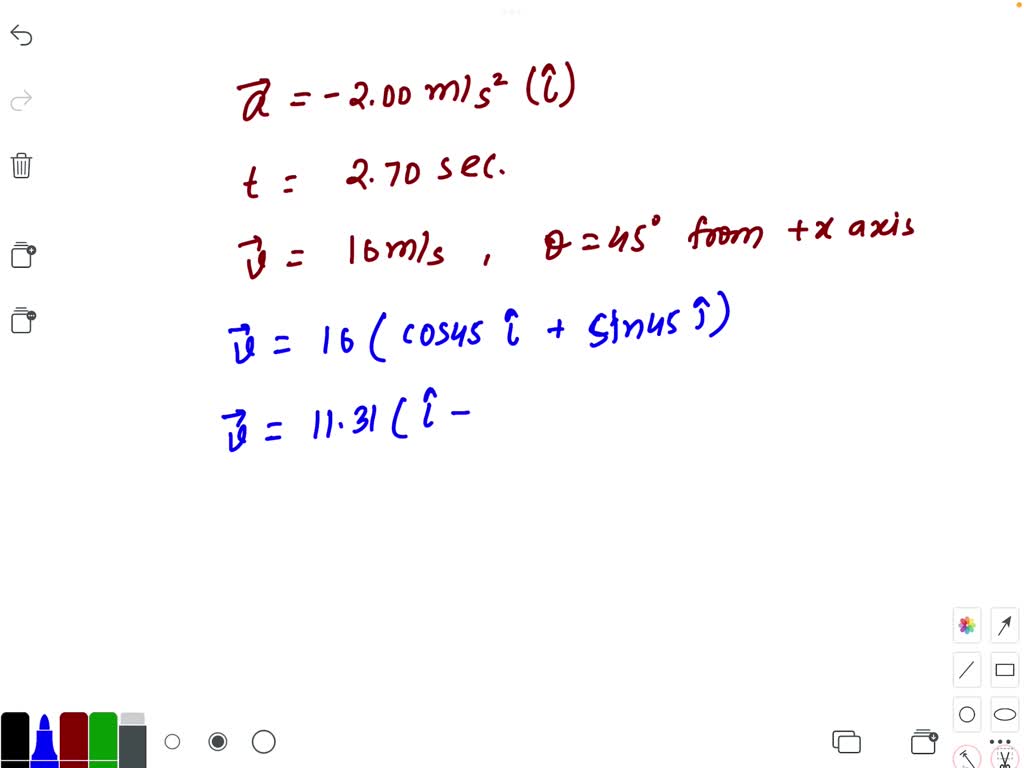 a⃗ = -2.00 m/s² (î)
t = 2.70 sec.
v⃗ = 16 m/s , θ = 45° from +x axis
v⃗ = 16 ( cos45 î + sin45 ĵ )
v⃗ = 11.31 ( î -